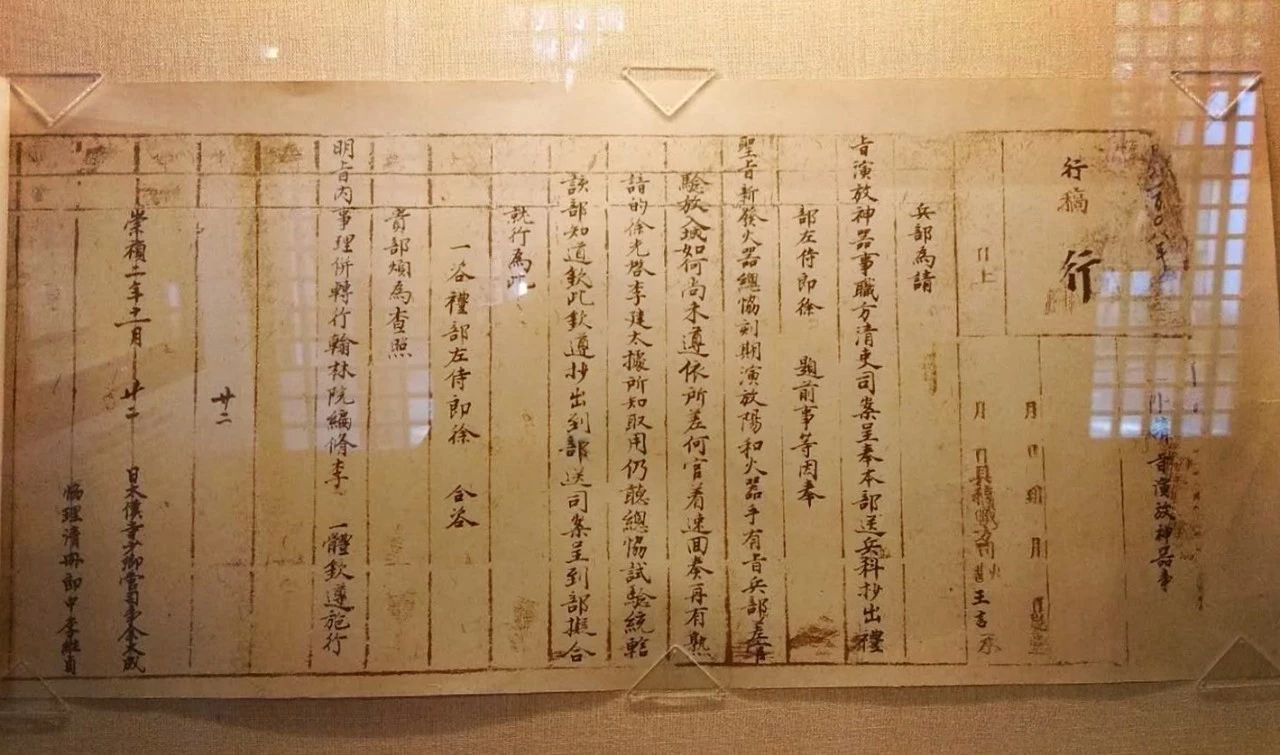 請旨演放神器事
行稿
行
日上
月 日
月
月 日具稿
王言承
兵部為請
旨演放神器事職方清吏司案呈奉本部送兵科抄出禮
部左侍郎徐 題前事等因奉
聖旨新發火器總協刻期演放陽和火器手有旨兵部差官
驗放入城如何尚未遵依所差何官着速回奏再有熟
諳的徐光啓李建太據所知取用仍聽總協試驗統轄
該部知道欽此欽遵抄出到部送司案呈到部擬合
就行為此
一咨禮部左侍郎徐 合咨
貴部煩為查照
明旨內事理併轉行翰林院編修李 一體欽遵施行
廿二
崇禎二年十一月 廿二 日太僕寺少卿管司事余大成
協理清冊郎中李繼貞